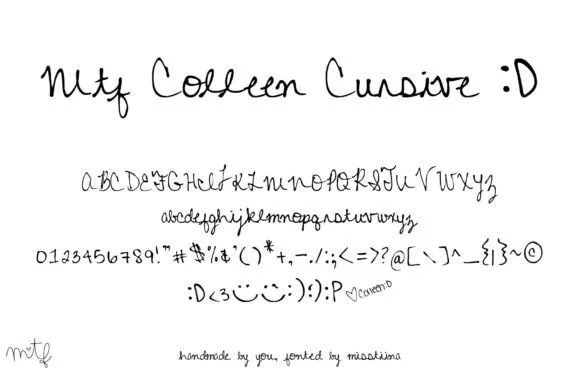 Mtf Colleen Cursive :D
ABCDEFGHIJKLMNOPQRSTUVWXYZ
abcdefghijklmnopqrstuvwxyz
0123456789!"#$%&'()*+,-./:;<=>?@[\]^_{|}~©
:D<3 :) ;) :P Colleen:D
mtf
handmade by you, fonted by misstiina